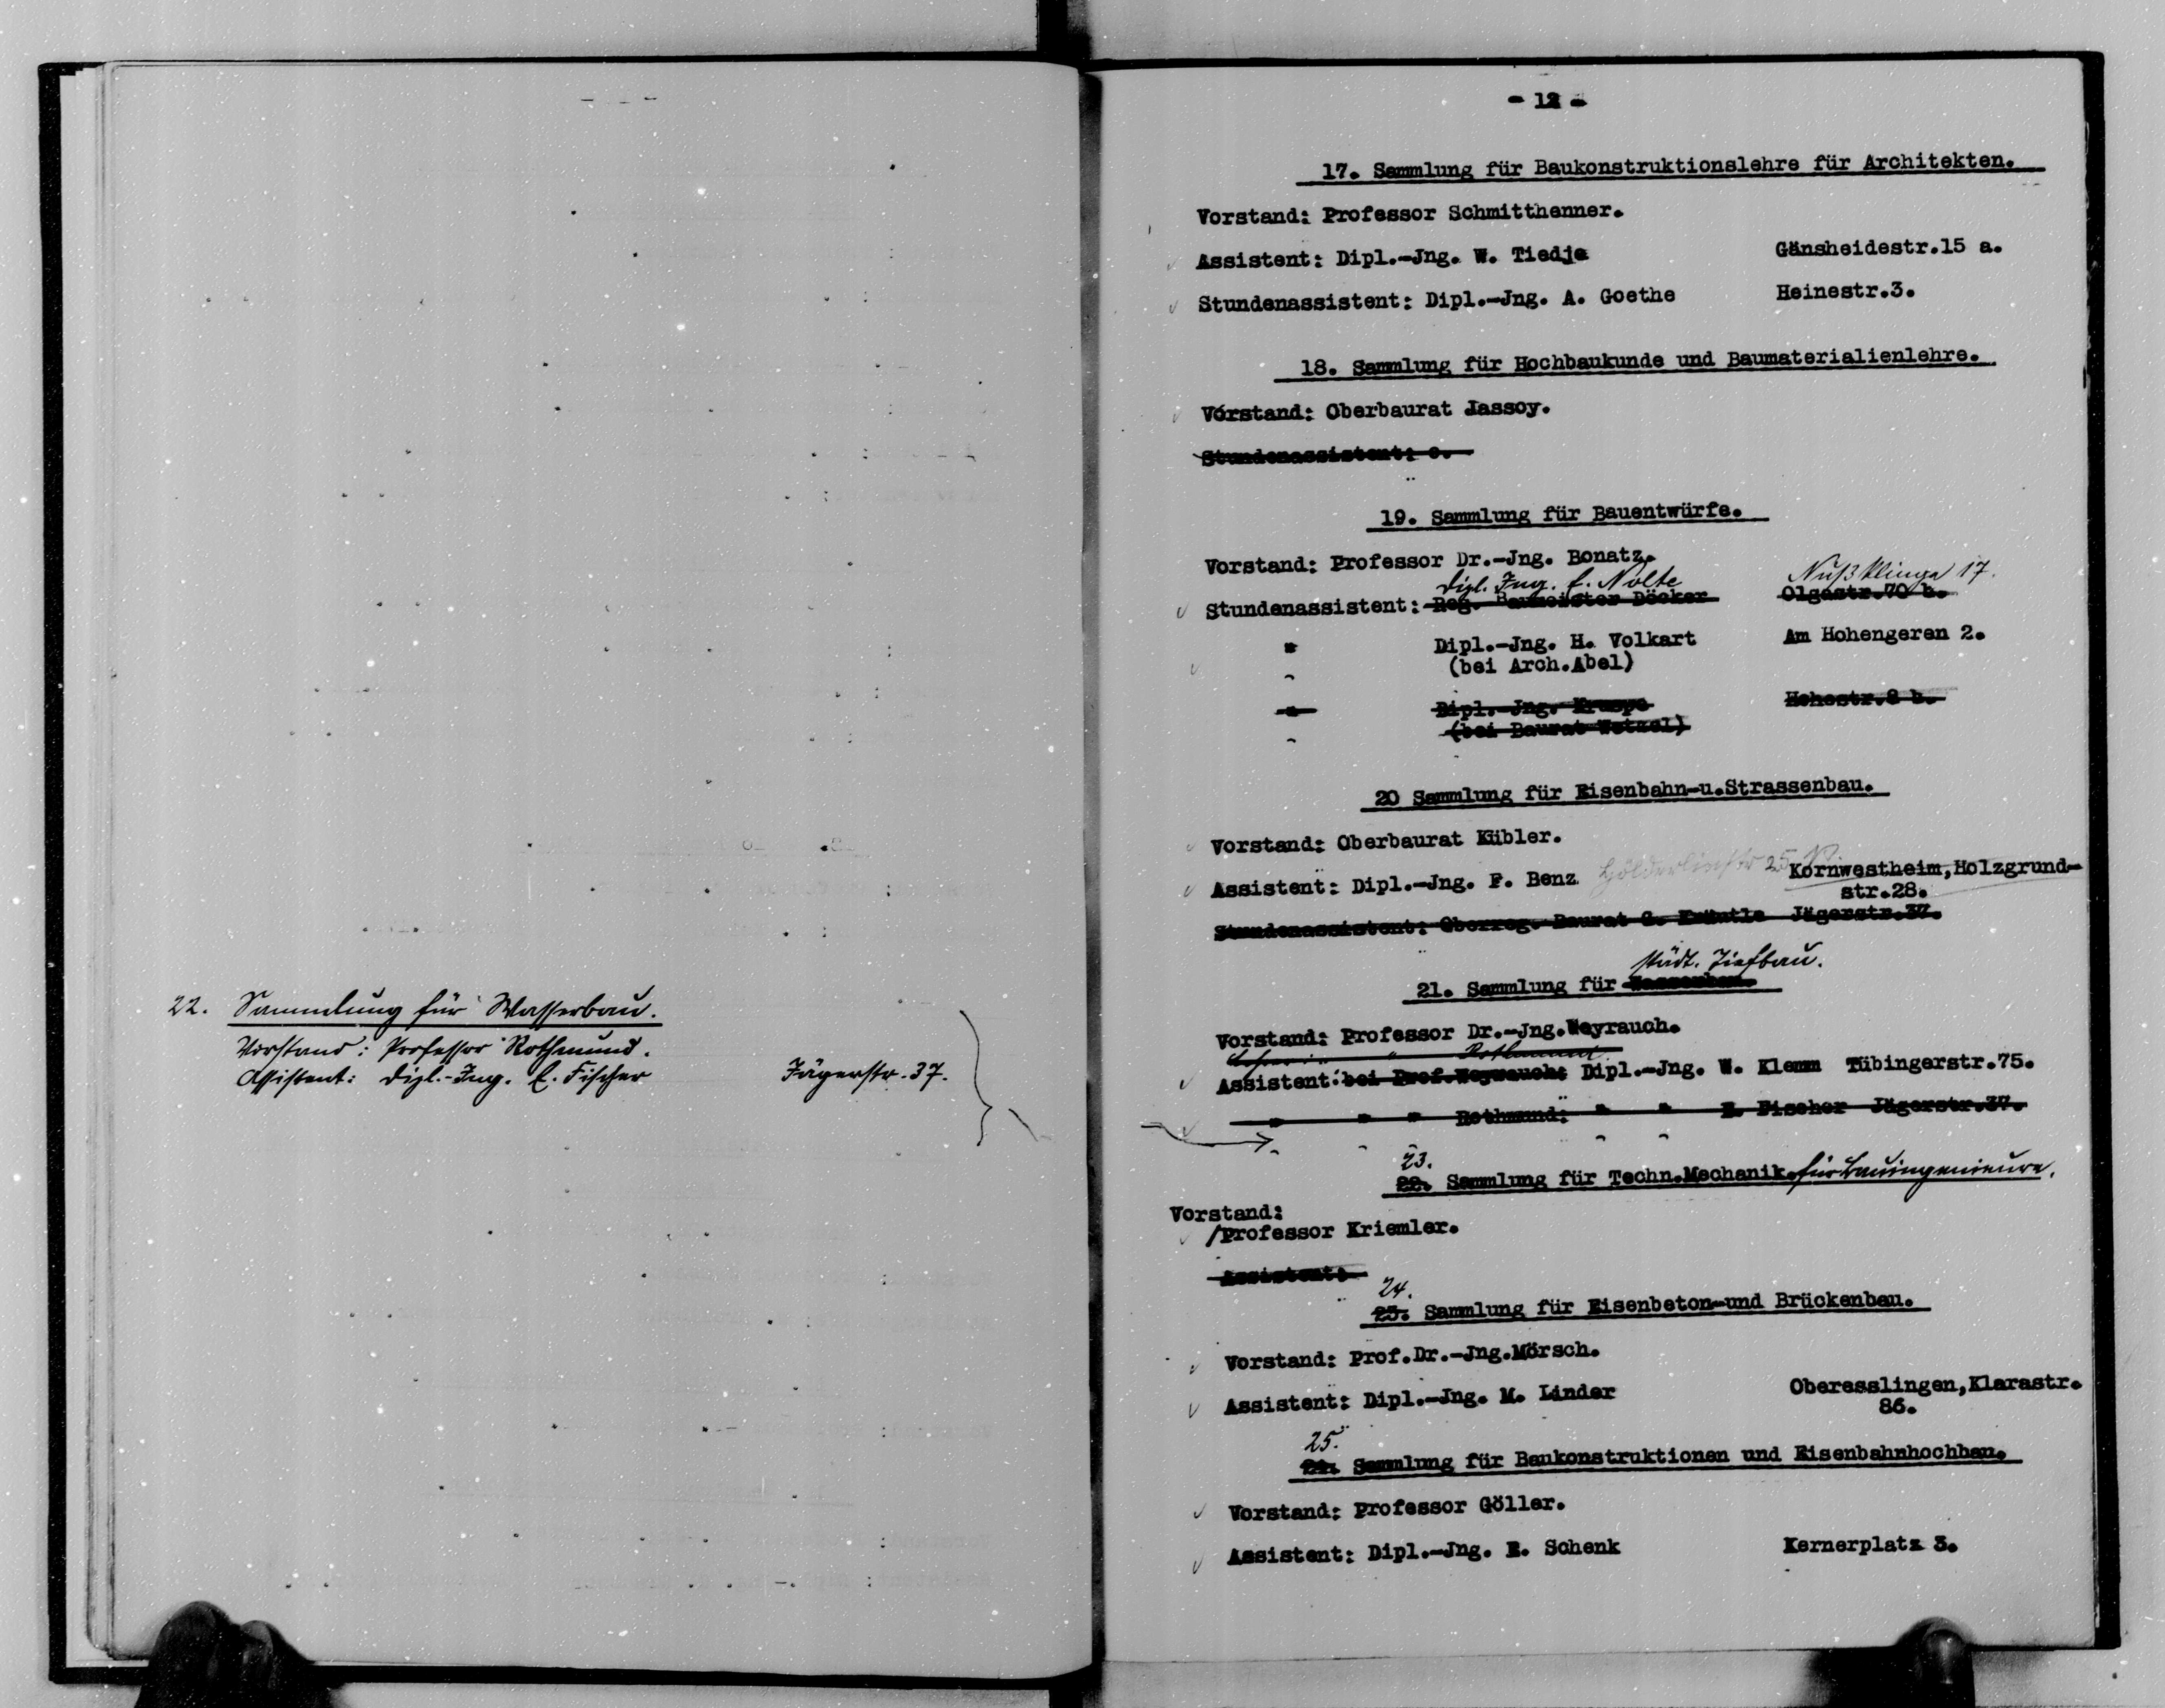 22. Sammlung für Wasserbau.
Vorstand: Professor Rothmund.
Assistent: Dipl.-Ing. E. Fischer Jägerstr. 37.
- 12 -
17. Sammlung für Baukonstruktionslehre für Architekten.
Vorstand: Professor Schmitthenner.
Assistent: Dipl.-Jng. W. Tiedje Gänsheidestr.15 a.
Stundenassistent: Dipl.-Jng. A. Goethe Heinestr.3.
18. Sammlung für Hochbaukunde und Baumaterialienlehre.
Vorstand: Oberbaurat Jassoy.
Stundenassistent: c.
19. Sammlung für Bauentwürfe.
Vorstand: Professor Dr.-Jng. Bonatz.
Dipl. Ing. E. Nolte Nußklinge 17.
Stundenassistent: Reg. Baumeister Döcker Olgastr.70 b.
" Dipl.-Jng. H. Volkart Am Hohengeren 2.
(bei Arch.Abel)
" Dipl.-Jng. Hohestr.8 b.
(bei Baurat Wetzel)
20 Sammlung für Eisenbahn-u.Strassenbau.
Vorstand: Oberbaurat Kübler.
Assistent: Dipl.-Jng. F. Benz Hölderlinstr 25 Kornwestheim,Holzgrund-
str.28.
Stundenassistent: Oberreg. Baurat G. Kräutle Jägerstr.37.
städt. Tiefbau.
21. Sammlung für Wasserbau.
Vorstand: Professor Dr.-Jng.Weyrauch.
" Rothmund.
Assistent: bei Prof.Weyrauch: Dipl.-Jng. W. Klemm Tübingerstr.75.
" " " Rothmund: " " E. Fischer Jägerstr.37.
23.
22. Sammlung für Techn.Mechanik. für Bauingenieure.
Vorstand:
/Professor Kriemler.
Assistent:
24.
23. Sammlung für Eisenbeton-und Brückenbau.
Vorstand: Prof.Dr.-Jng.Mörsch.
Assistent: Dipl.-Jng. M. Linder Oberesslingen,Klarastr.
86.
25.
24. Sammlung für Baukonstruktionen und Eisenbahnhochbau.
Vorstand: Professor Göller.
Assistent: Dipl.-Jng. E. Schenk Kernerplatz 3.